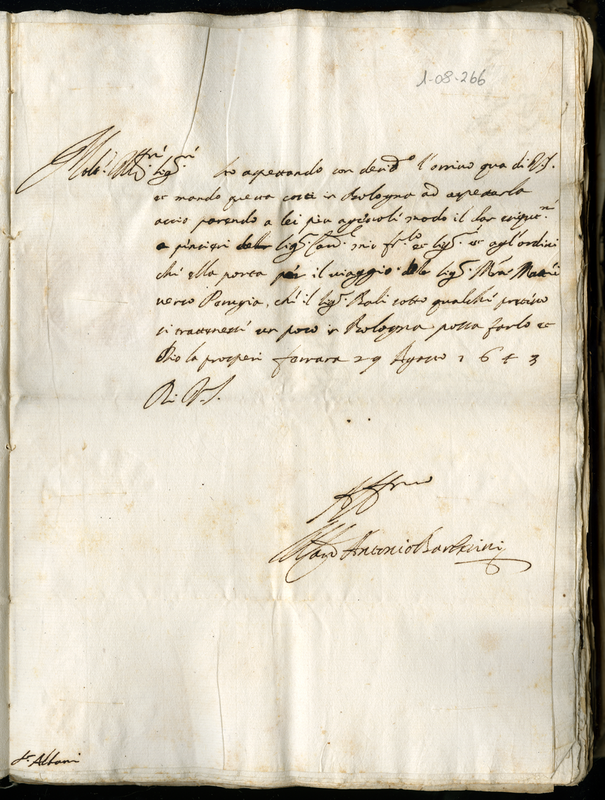 1-08-266
sto aspettando con desid.º l'arrivo qua di V.S.
et mando questa costì in Bologna ad aspettarla
acciò parendo a lei più agevoli modo il far
a piacieri della Sig.r Card.l mio fr.lo et Sig.r et agl'ordini
ché ella porta per il viaggio della Sig.r
verso Perugia, ché il Sig.r Bali sotto qualché
si trattenesse un poco in Bologna possa farlo et
Dio la prosperi ferrara 29 Agosto 1643
Di V.S.
Aff.mo
Antonio Barberini
Albani